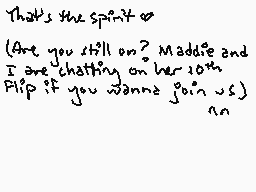 That's the spirit ♥
(Are you still on? Maddie and
I are chatting on her 10th
Flip if you wanna join us)
nn